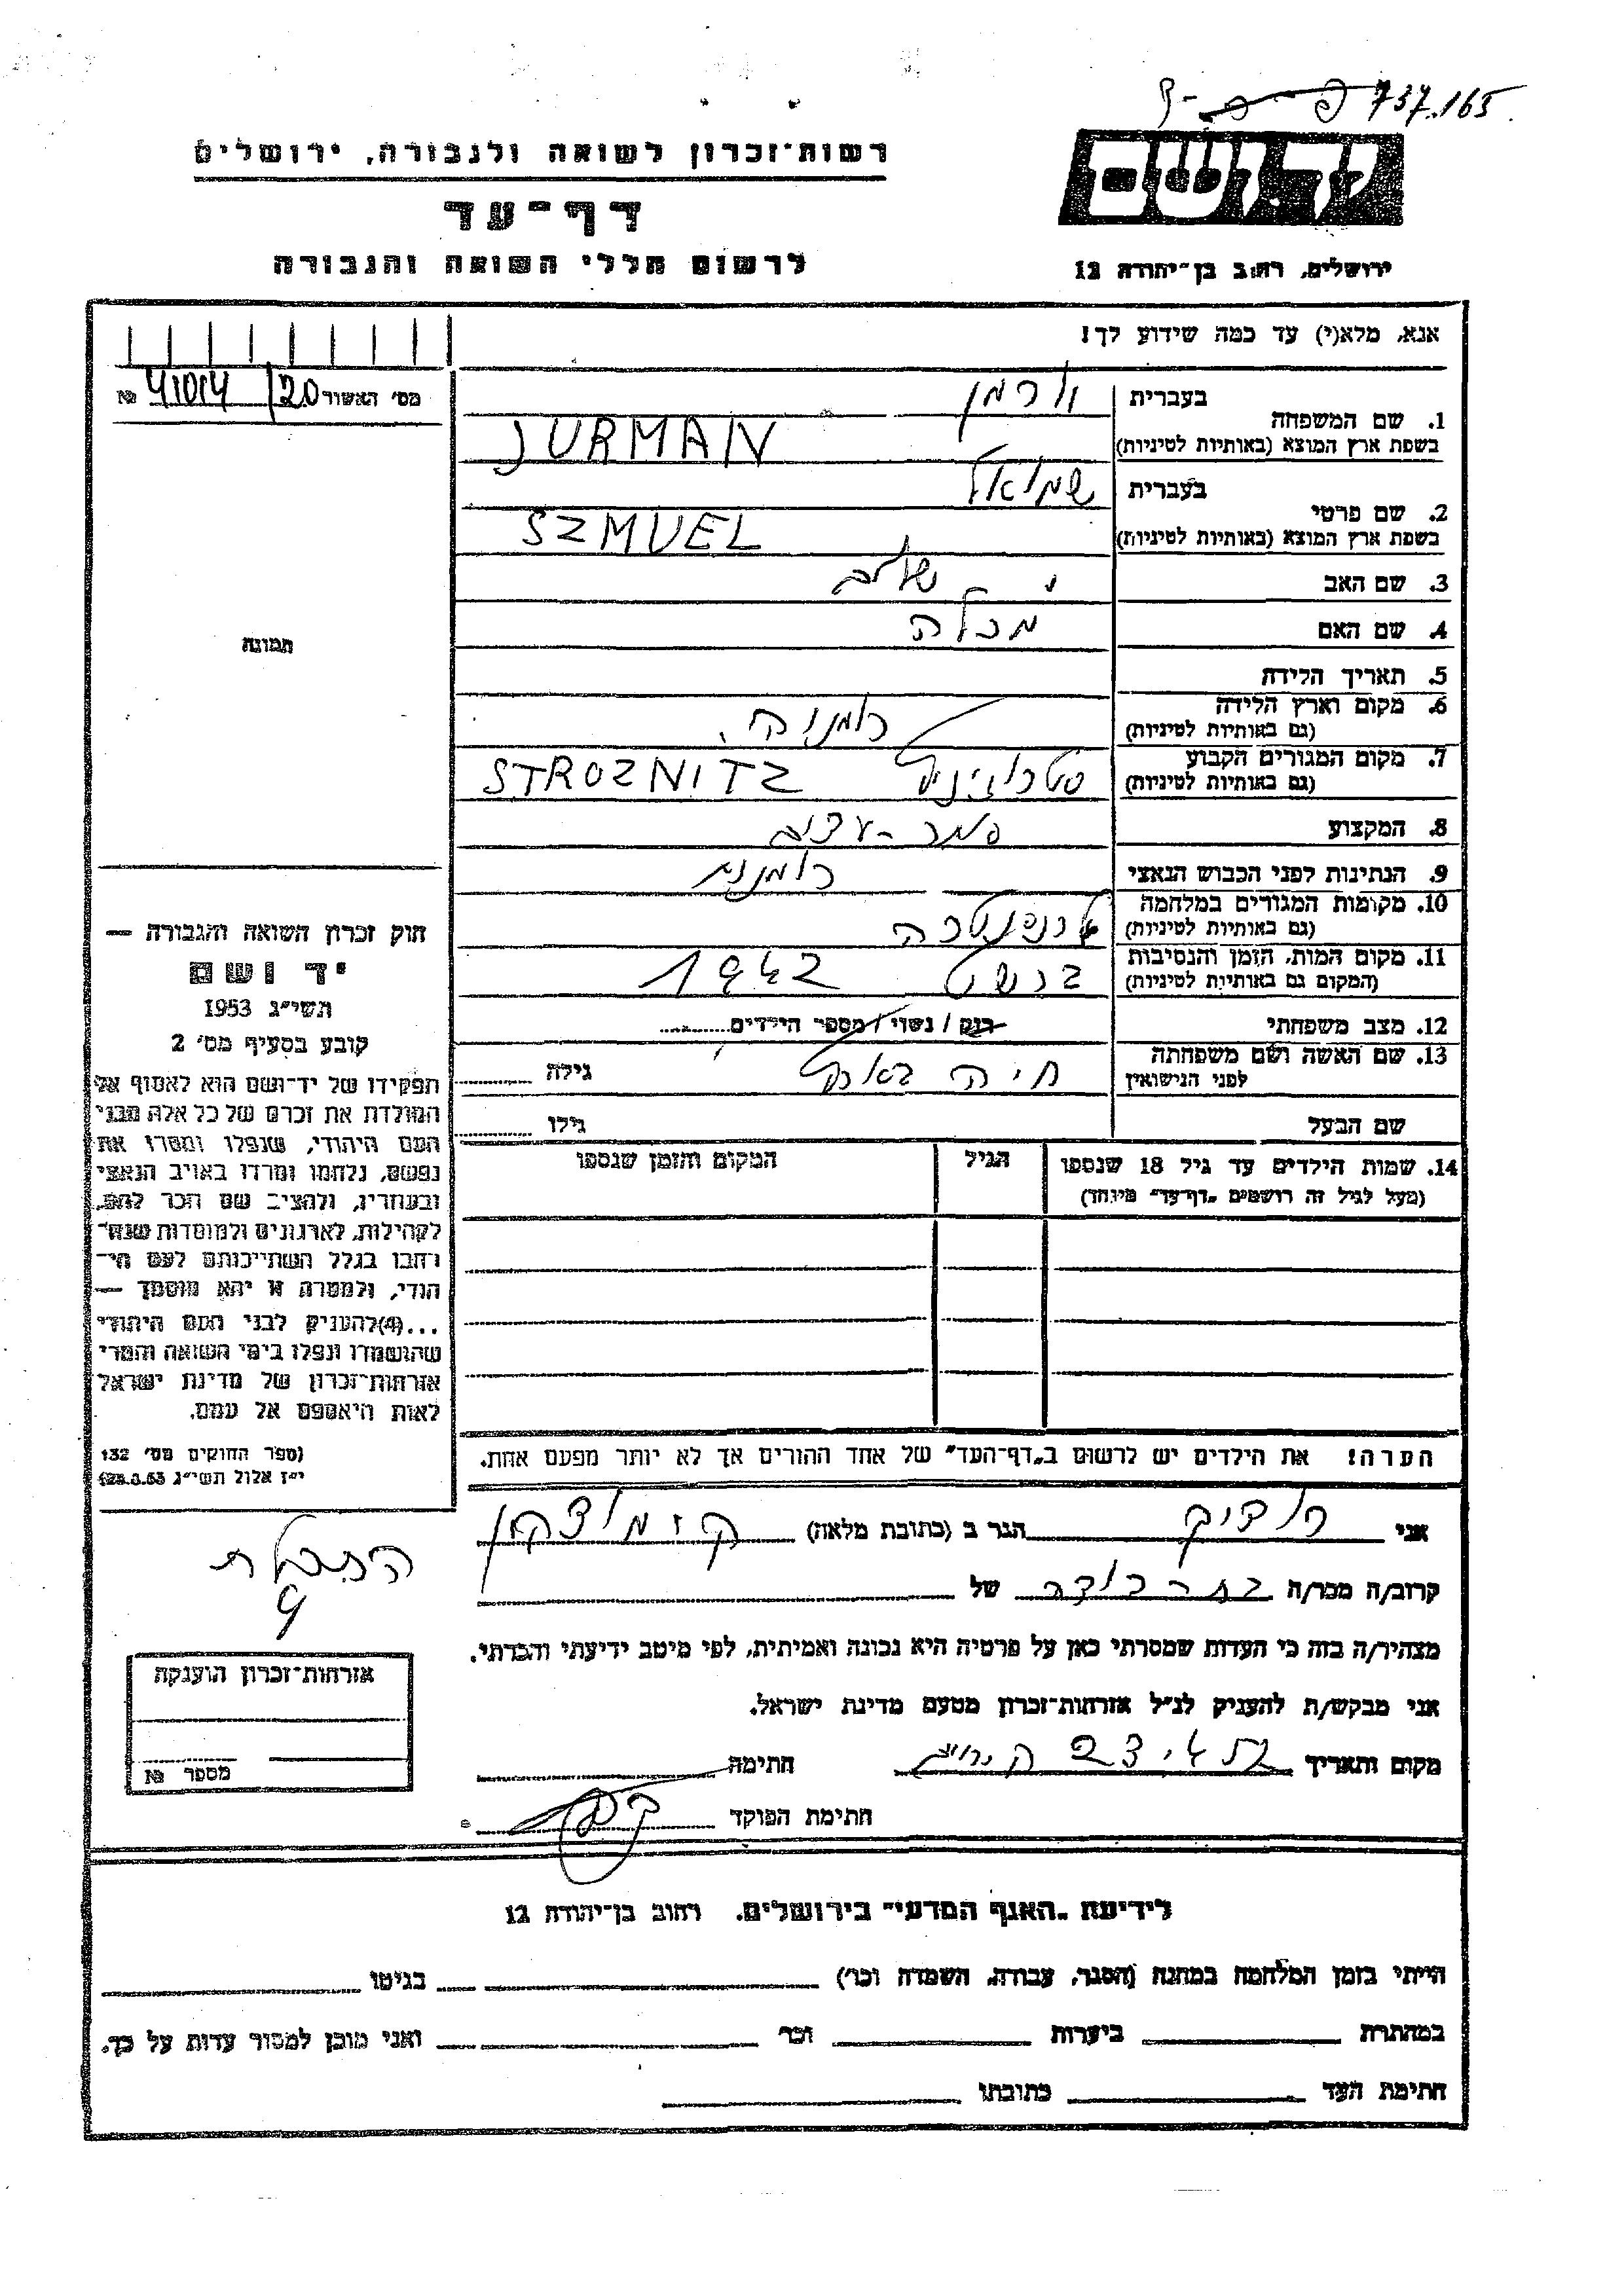 737.165
רשות־זכרון לשואה ולגבורה, ירושלים
יד ושם
דף־עד
לרשום חללי השואה והגבורה
ירושלים, רחוב בן־יהודה 12
אנא, מלא(י) עד כמה שידוע לך!
מס׳ האשור 20/ 41014 №
1. שם המשפחה בעברית יורמן
בשפת ארץ המוצא (באותיות לטיניות) JURMAN
2. שם פרטי בעברית שמואל
בשפת ארץ המוצא (באותיות לטיניות) SZMUEL
3. שם האב שלום
4. שם האם מכלה
5. תאריך הלידה
6. מקום וארץ הלידה (גם באותיות לטיניות) רומניה
7. מקום המגורים הקבוע (גם באותיות לטיניות) סטרוז'ניץ STROZNITZ
8. המקצוע סחר - עצים
9. הנתינות לפני הכבוש הנאצי רומנית
10. מקומות המגורים במלחמה (גם באותיות לטיניות) טרנסניסטריה
11. מקום המות, הזמן והנסיבות (המקום גם באותיות לטיניות) 1942
12. מצב משפחתי רווק / נשוי / מספר הילדים
13. שם האשה ושם משפחתה לפני הנישואין חיה גילה
שם הבעל גילו
14. שמות הילדים עד גיל 18 שנספו
(מעל לגיל זה רושמים „דף־עד״ מיוחד)
הגיל
המקום והזמן שנספו
תמונה
חוק זכרון השואה והגבורה —
יד ושם
תשי״ג 1953
קובע בסעיף מס׳ 2
תפקידו של יד־ושם הוא לאסוף אל
המולדת את זכרם של כל אלה מבני
העם היהודי, שנפלו ומסרו את
נפשם, נלחמו ומרדו באויב הנאצי
ובעוזריו, ולהציב שם וזכר להם,
לקהילות, לארגונים ולמוסדות שנח־
רבו בגלל השתייכותם לעם הי־
הודי, ולמטרה זו יהא מוסמך —
...(4)להעניק לבני העם היהודי
שהושמדו ונפלו בימי השואה והמרי
אזרחות־זכרון של מדינת ישראל
לאות היאספם אל עמם.
(ספר החוקים מס׳ 132
י״ז אלול תשי״ג 28.8.53)
הערה! את הילדים יש לרשום ב„דף־העד״ של אחד ההורים אך לא יותר מפעם אחת.
אני הגר ב (כתובת מלאה)
קרוב/ה מכר/ה של
מצהיר/ה בזה כי העדות שמסרתי כאן על פרטיה היא נכונה ואמיתית, לפי מיטב ידיעתי והכרתי.
אני מבקש/ת להעניק לנ״ל אזרחות־זכרון מטעם מדינת ישראל.
מקום ותאריך חתימה
חתימת הפוקד
אזרחות־זכרון הוענקה
מספר №
לידיעת „האגף המדעי״ בירושלים, רחוב בן־יהודה 12
הייתי בזמן המלחמה במחנה (הסגר, עבודה, השמדה וכו׳) בגיטו
במחתרת ביערות וכו׳ ואני מוכן למסור עדות על כך.
חתימת העד כתובתו